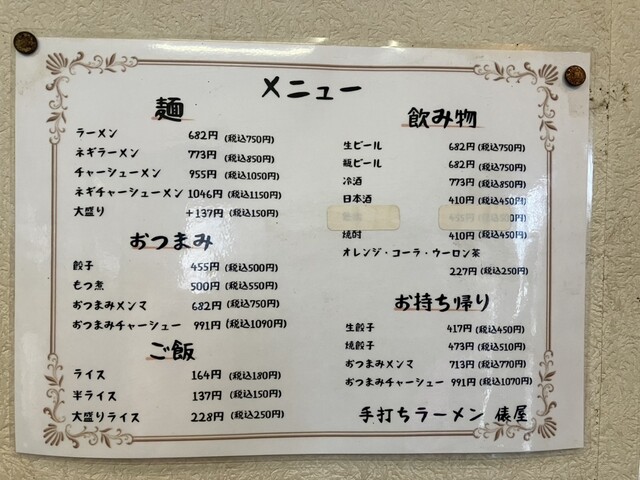 メニュー
麺
ラーメン 682円 (税込750円)
ネギラーメン 773円 (税込850円)
チャーシューメン 955円 (税込1050円)
ネギチャーシューメン 1046円 (税込1150円)
大盛り +137円 (税込150円)
おつまみ
餃子 455円 (税込500円)
もつ煮 500円 (税込550円)
おつまみメンマ 682円 (税込750円)
おつまみチャーシュー 991円 (税込1090円)
ご飯
ライス 164円 (税込180円)
半ライス 137円 (税込150円)
大盛りライス 228円 (税込250円)
飲み物
生ビール 682円 (税込750円)
瓶ビール 682円 (税込750円)
冷酒 773円 (税込850円)
日本酒 410円 (税込450円)
焼酎 410円 (税込450円)
オレンジ・コーラ・ウーロン茶
227円 (税込250円)
お持ち帰り
生餃子 417円 (税込450円)
焼餃子 473円 (税込510円)
おつまみメンマ 713円 (税込770円)
おつまみチャーシュー 991円 (税込1070円)
手打ちラーメン 俵屋